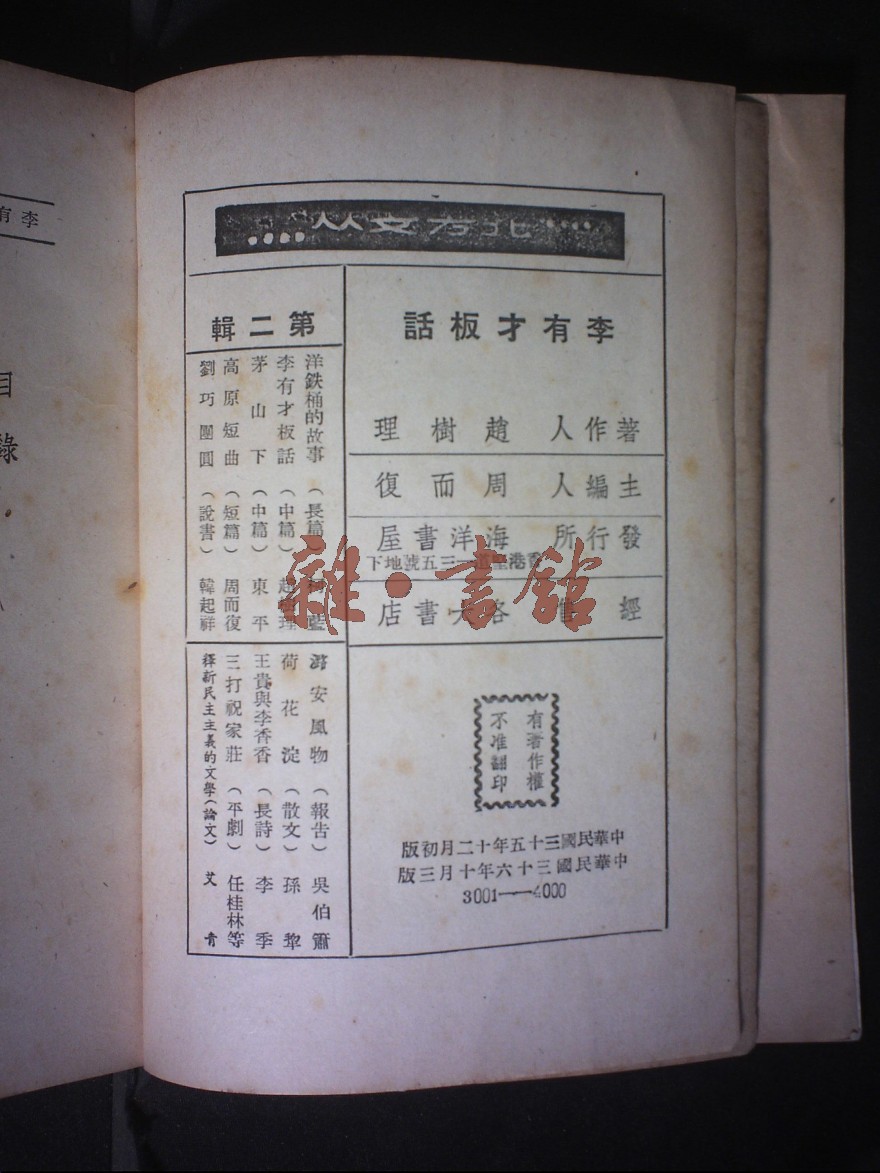 北方文叢
李有才板話
著作人 趙樹理
主編人 周而復
發行所 海洋書屋
香港 一三五號地下
經售 各大書店
有著作權
不准翻印
中華民國三十五年十二月初版
中華民國三十六年十月三版
3001——4000
第二輯
洋鉄桶的故事(長篇)柯藍
李有才板話(中篇)趙樹理
茅山下(中篇)東平
高原短曲(短篇)周而復
劉巧團圓(說書)韓起祥
安風物(報告)吳伯簫
荷花淀(散文)孫犂
王貴與李香香(長詩)李季
三打祝家莊(平劇)任桂林等
釋新民主主義的文學(論文)艾青
雜·書館
李有
目錄